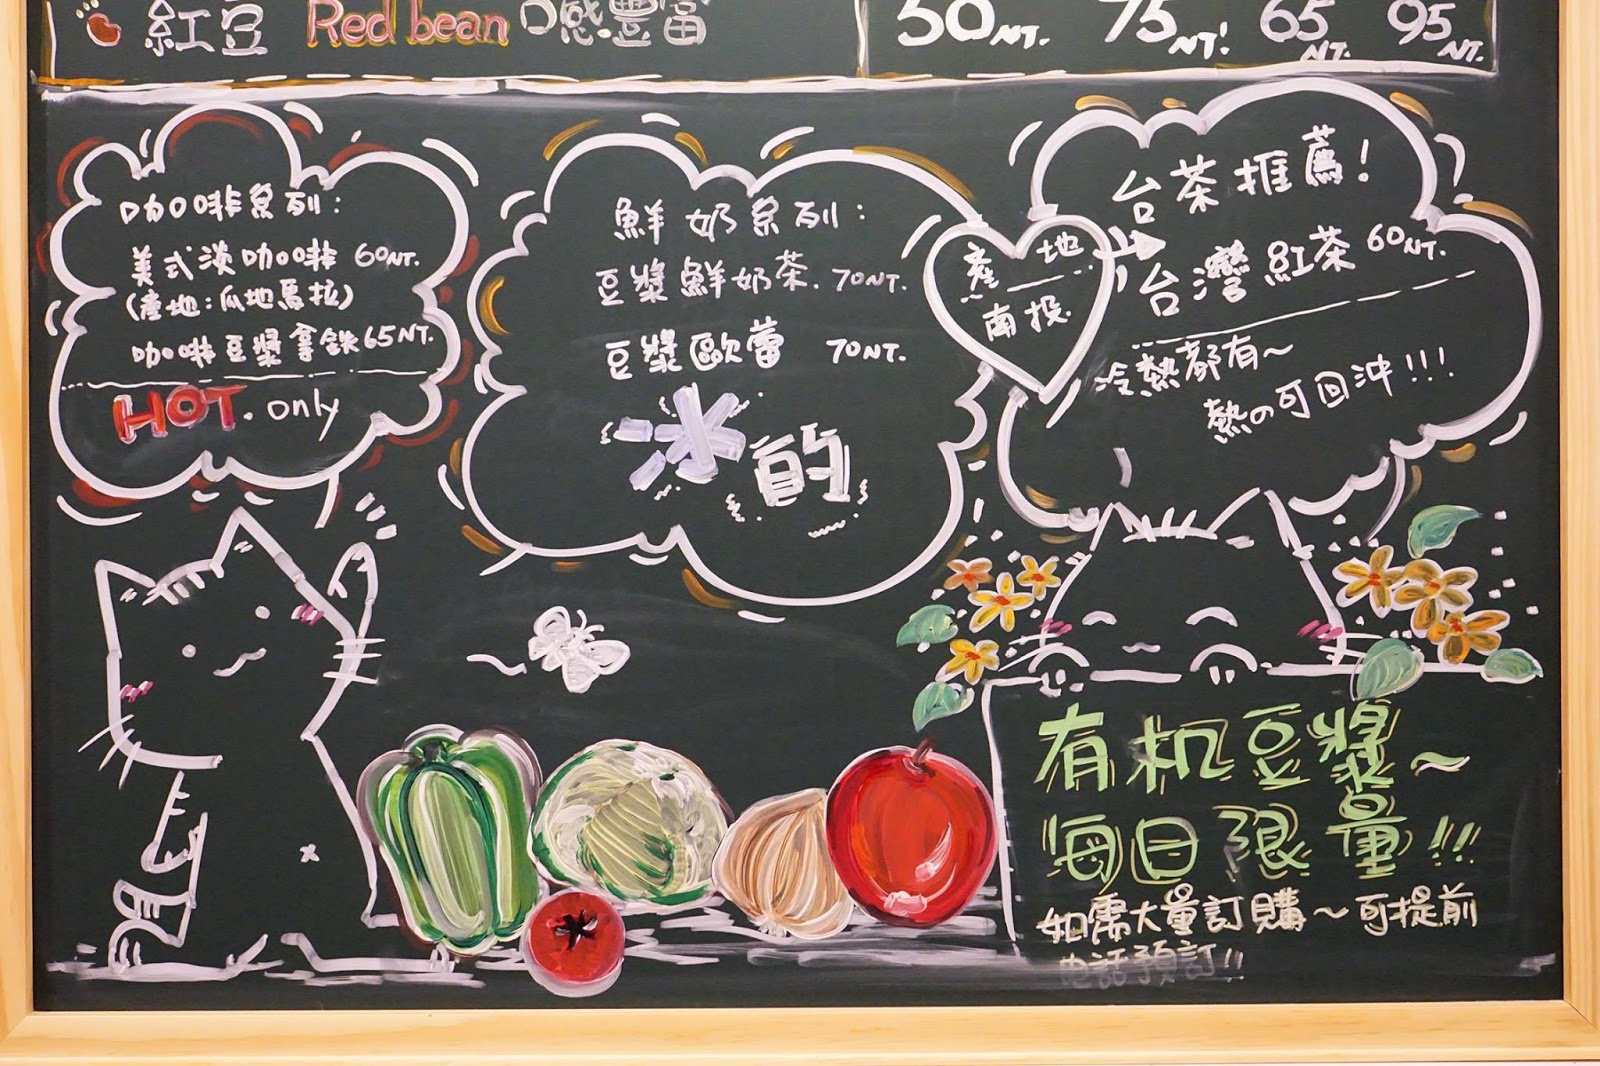 紅豆 Red bean 口感豐富 50NT. 75NT! 65NT. 95NT.
咖啡系列:
美式淡咖啡 60NT.
(產地:瓜地馬拉)
咖啡豆漿拿鐵65NT.
HOT. only
鮮奶系列:
豆漿鮮奶茶. 70NT.
豆漿歐蕾 70NT.
冰的
產地
南投.
台茶推薦!
台灣紅茶 60NT.
冷熱都有~
熱の可回沖!!!
有机豆漿~
每日限量!!
如需大量訂購~可提前
電話預訂!!